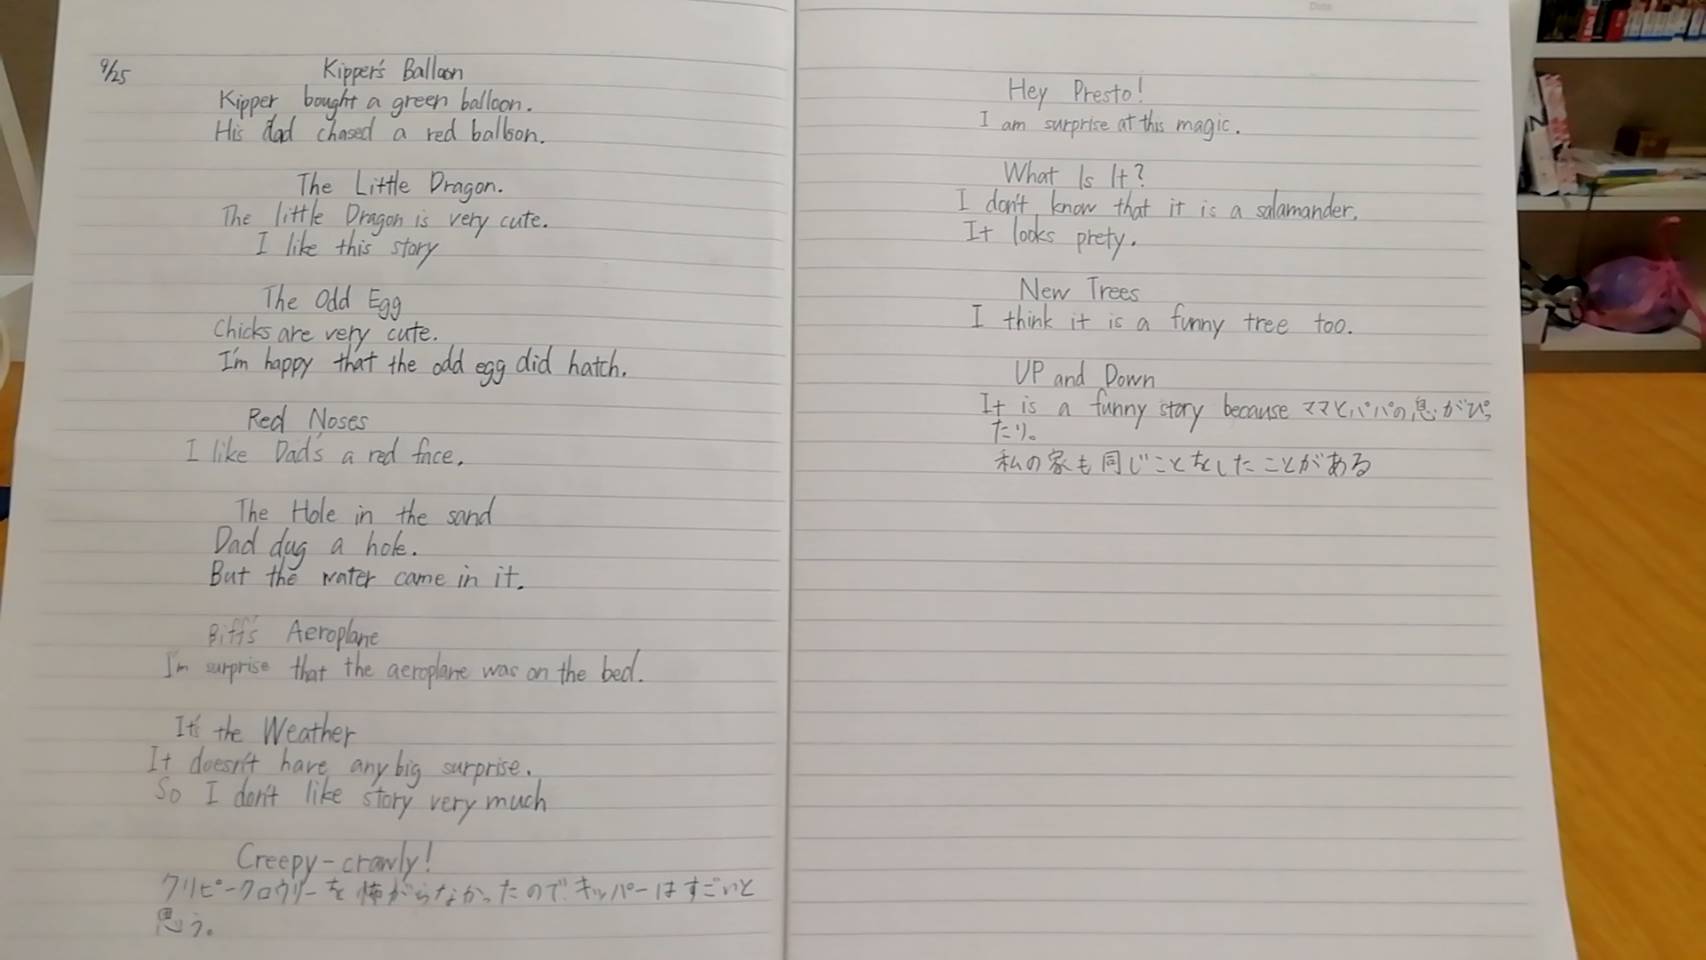 9/25
Kipper's Balloon
Kipper bought a green balloon.
His dad chased a red balloon.
The Little Dragon.
The little Dragon is very cute.
I like this story
The Odd Egg
Chicks are very cute.
I'm happy that the odd egg did hatch.
Red Noses
I like Dad's a red face.
The Hole in the sand
Dad dug a hole.
But the water came in it.
Biff's Aeroplane
I'm surprise that the aeroplane was on the bed.
It's the Weather
It doesn't have any big surprise.
So I don't like story very much
Creepy-crawly!
クリピークロウリーを怖がらなかったので、キッパーはすごいと
思う。
Date
Hey Presto!
I am surprise at this magic.
What Is It?
I don't know that it is a salamander.
It looks prety.
New Trees
I think it is a funny tree too.
UP and Down
It is a funny story because ママとパパの息がぴっ
たり。
私の家も同じことをしたことがある